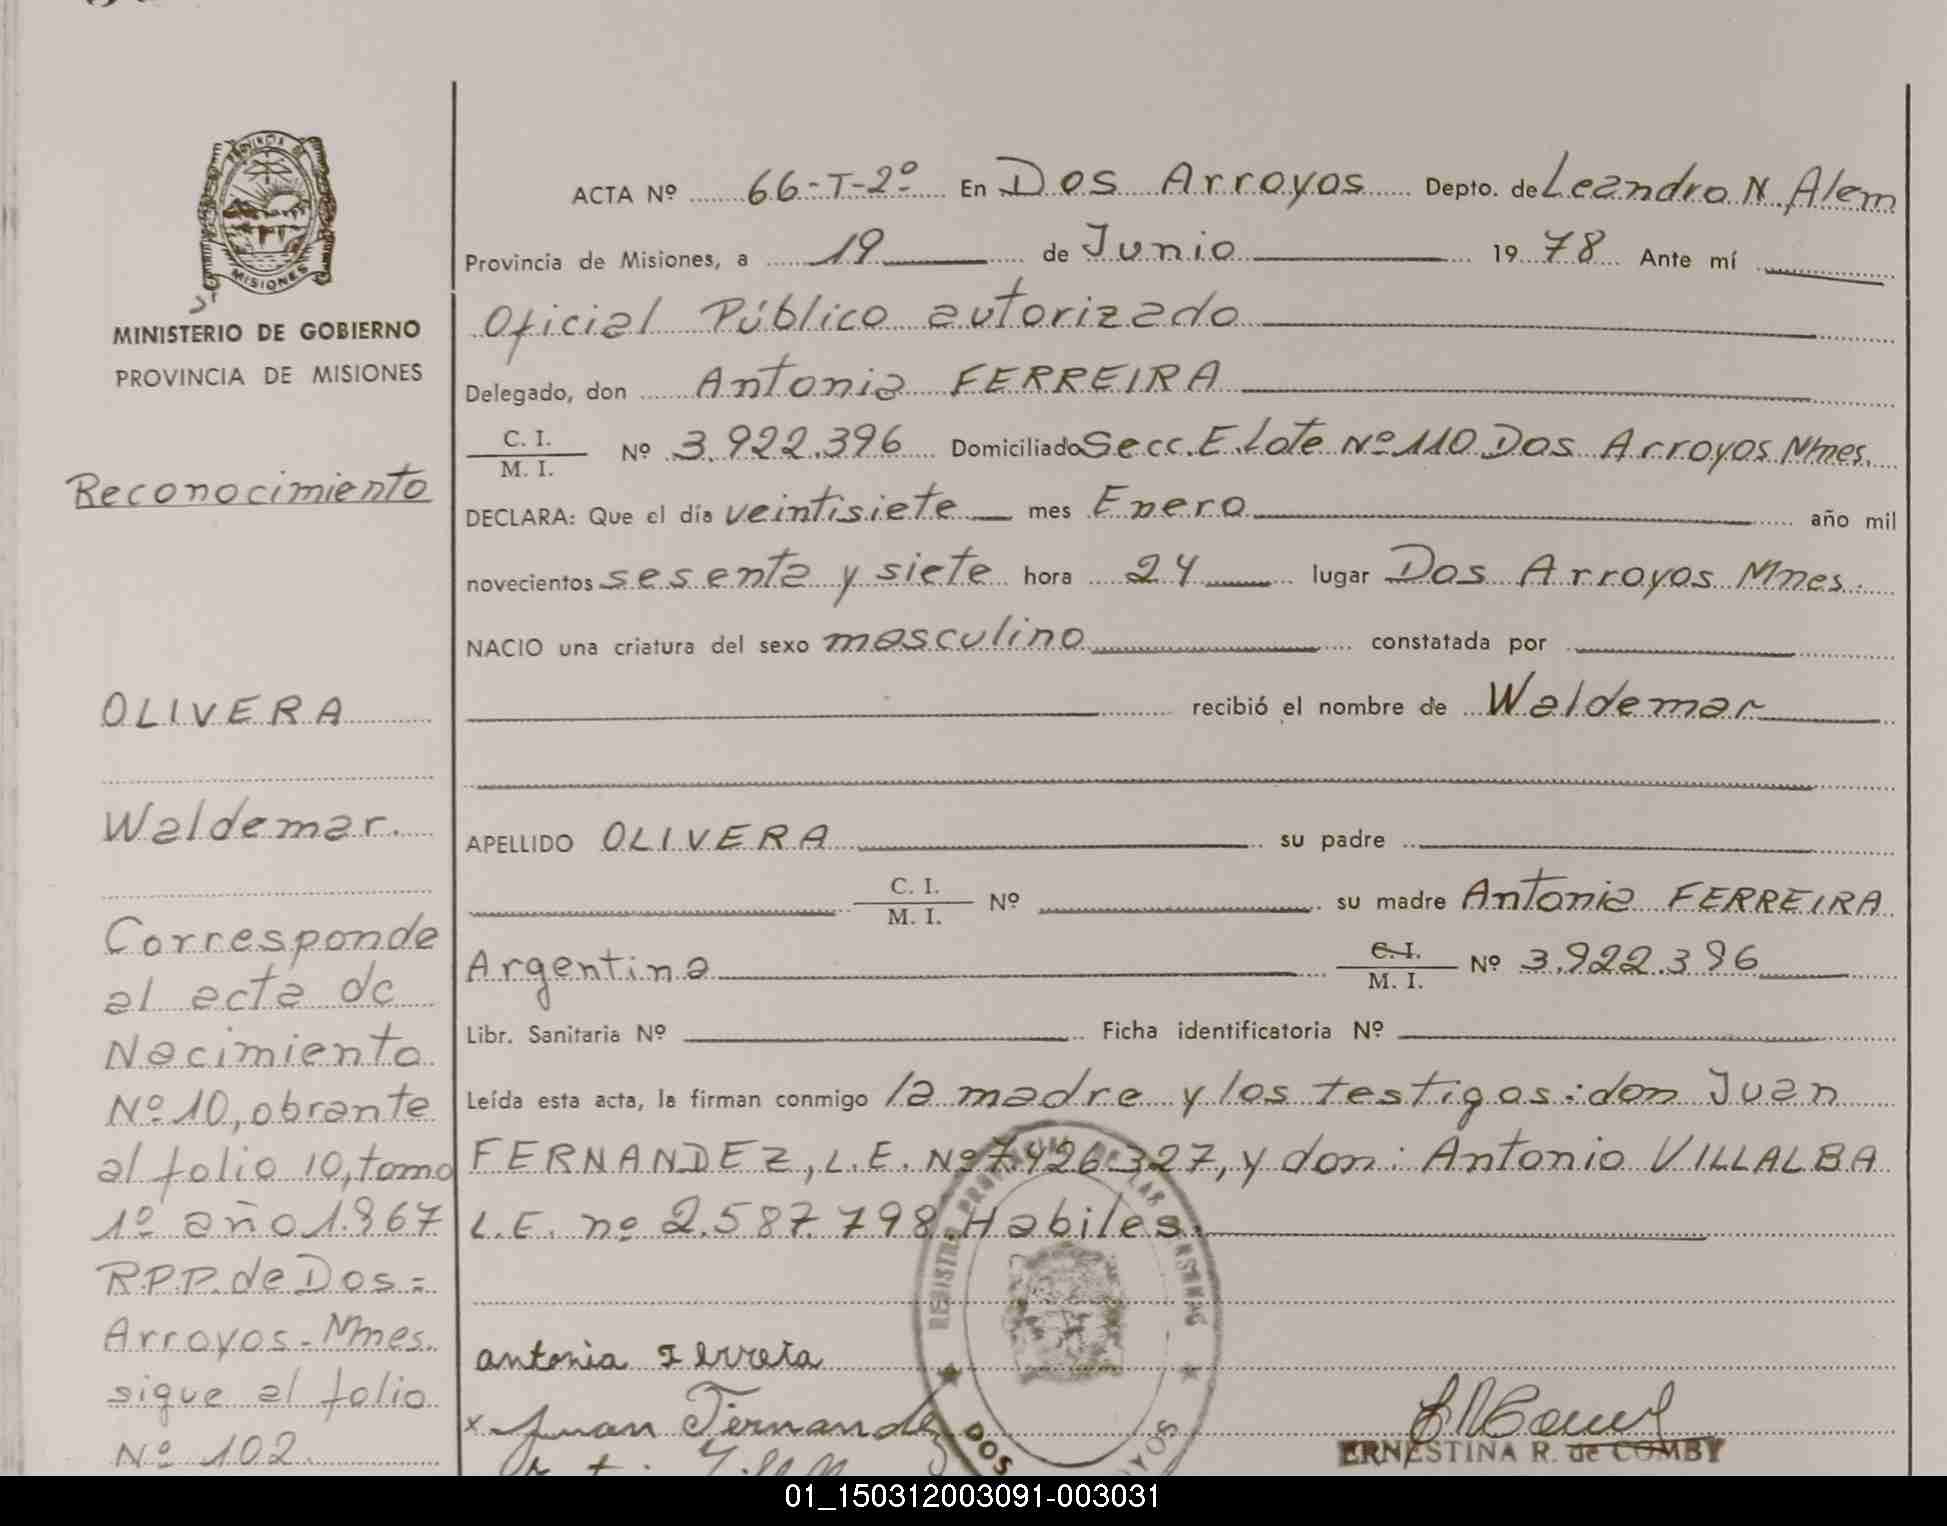 PROVINCIA DE
MISIONES
MINISTERIO DE GOBIERNO
PROVINCIA DE MISIONES
Reconocimiento
OLIVERA
Waldemar.
Corresponde
al acta de
Nacimiento
Nº 10, obrante
al folio 10, tomo
1º año 1.967
R.P.P. de Dos=
Arroyos - Mnes.
sigue al folio
Nº 102
ACTA Nº 66-T-2º En Dos Arroyos Depto. de Leandro N. Alem
Provincia de Misiones, a 19 de Junio 1978 Ante mí
Oficial Público autorizado
Delegado, don Antonia FERREIRA
C. I.
M. I. Nº 3.922.396 Domiciliado Secc. E. Lote Nº 110 Dos Arroyos Mnes.
DECLARA: Que el día veintisiete mes Enero año mil
novecientos sesenta y siete hora 24 lugar Dos Arroyos Mnes.
NACIO una criatura del sexo masculino constatada por
recibió el nombre de Waldemar
APELLIDO OLIVERA su padre
C. I.
M. I. Nº su madre Antonia FERREIRA
Argentina C. I.
M. I. Nº 3.922.396
Libr. Sanitaria Nº Ficha identificatoria Nº
Leída esta acta, la firman conmigo la madre y los testigos: don Juan
FERNANDEZ, L.E. Nº 7.426.327, y don: Antonio VILLALBA
L.E. nº 2.587.798 Habiles.
antonia Ferreira
x Juan Fernandez
DOS
ERNESTINA R. de COMBY
01_150312003091-003031